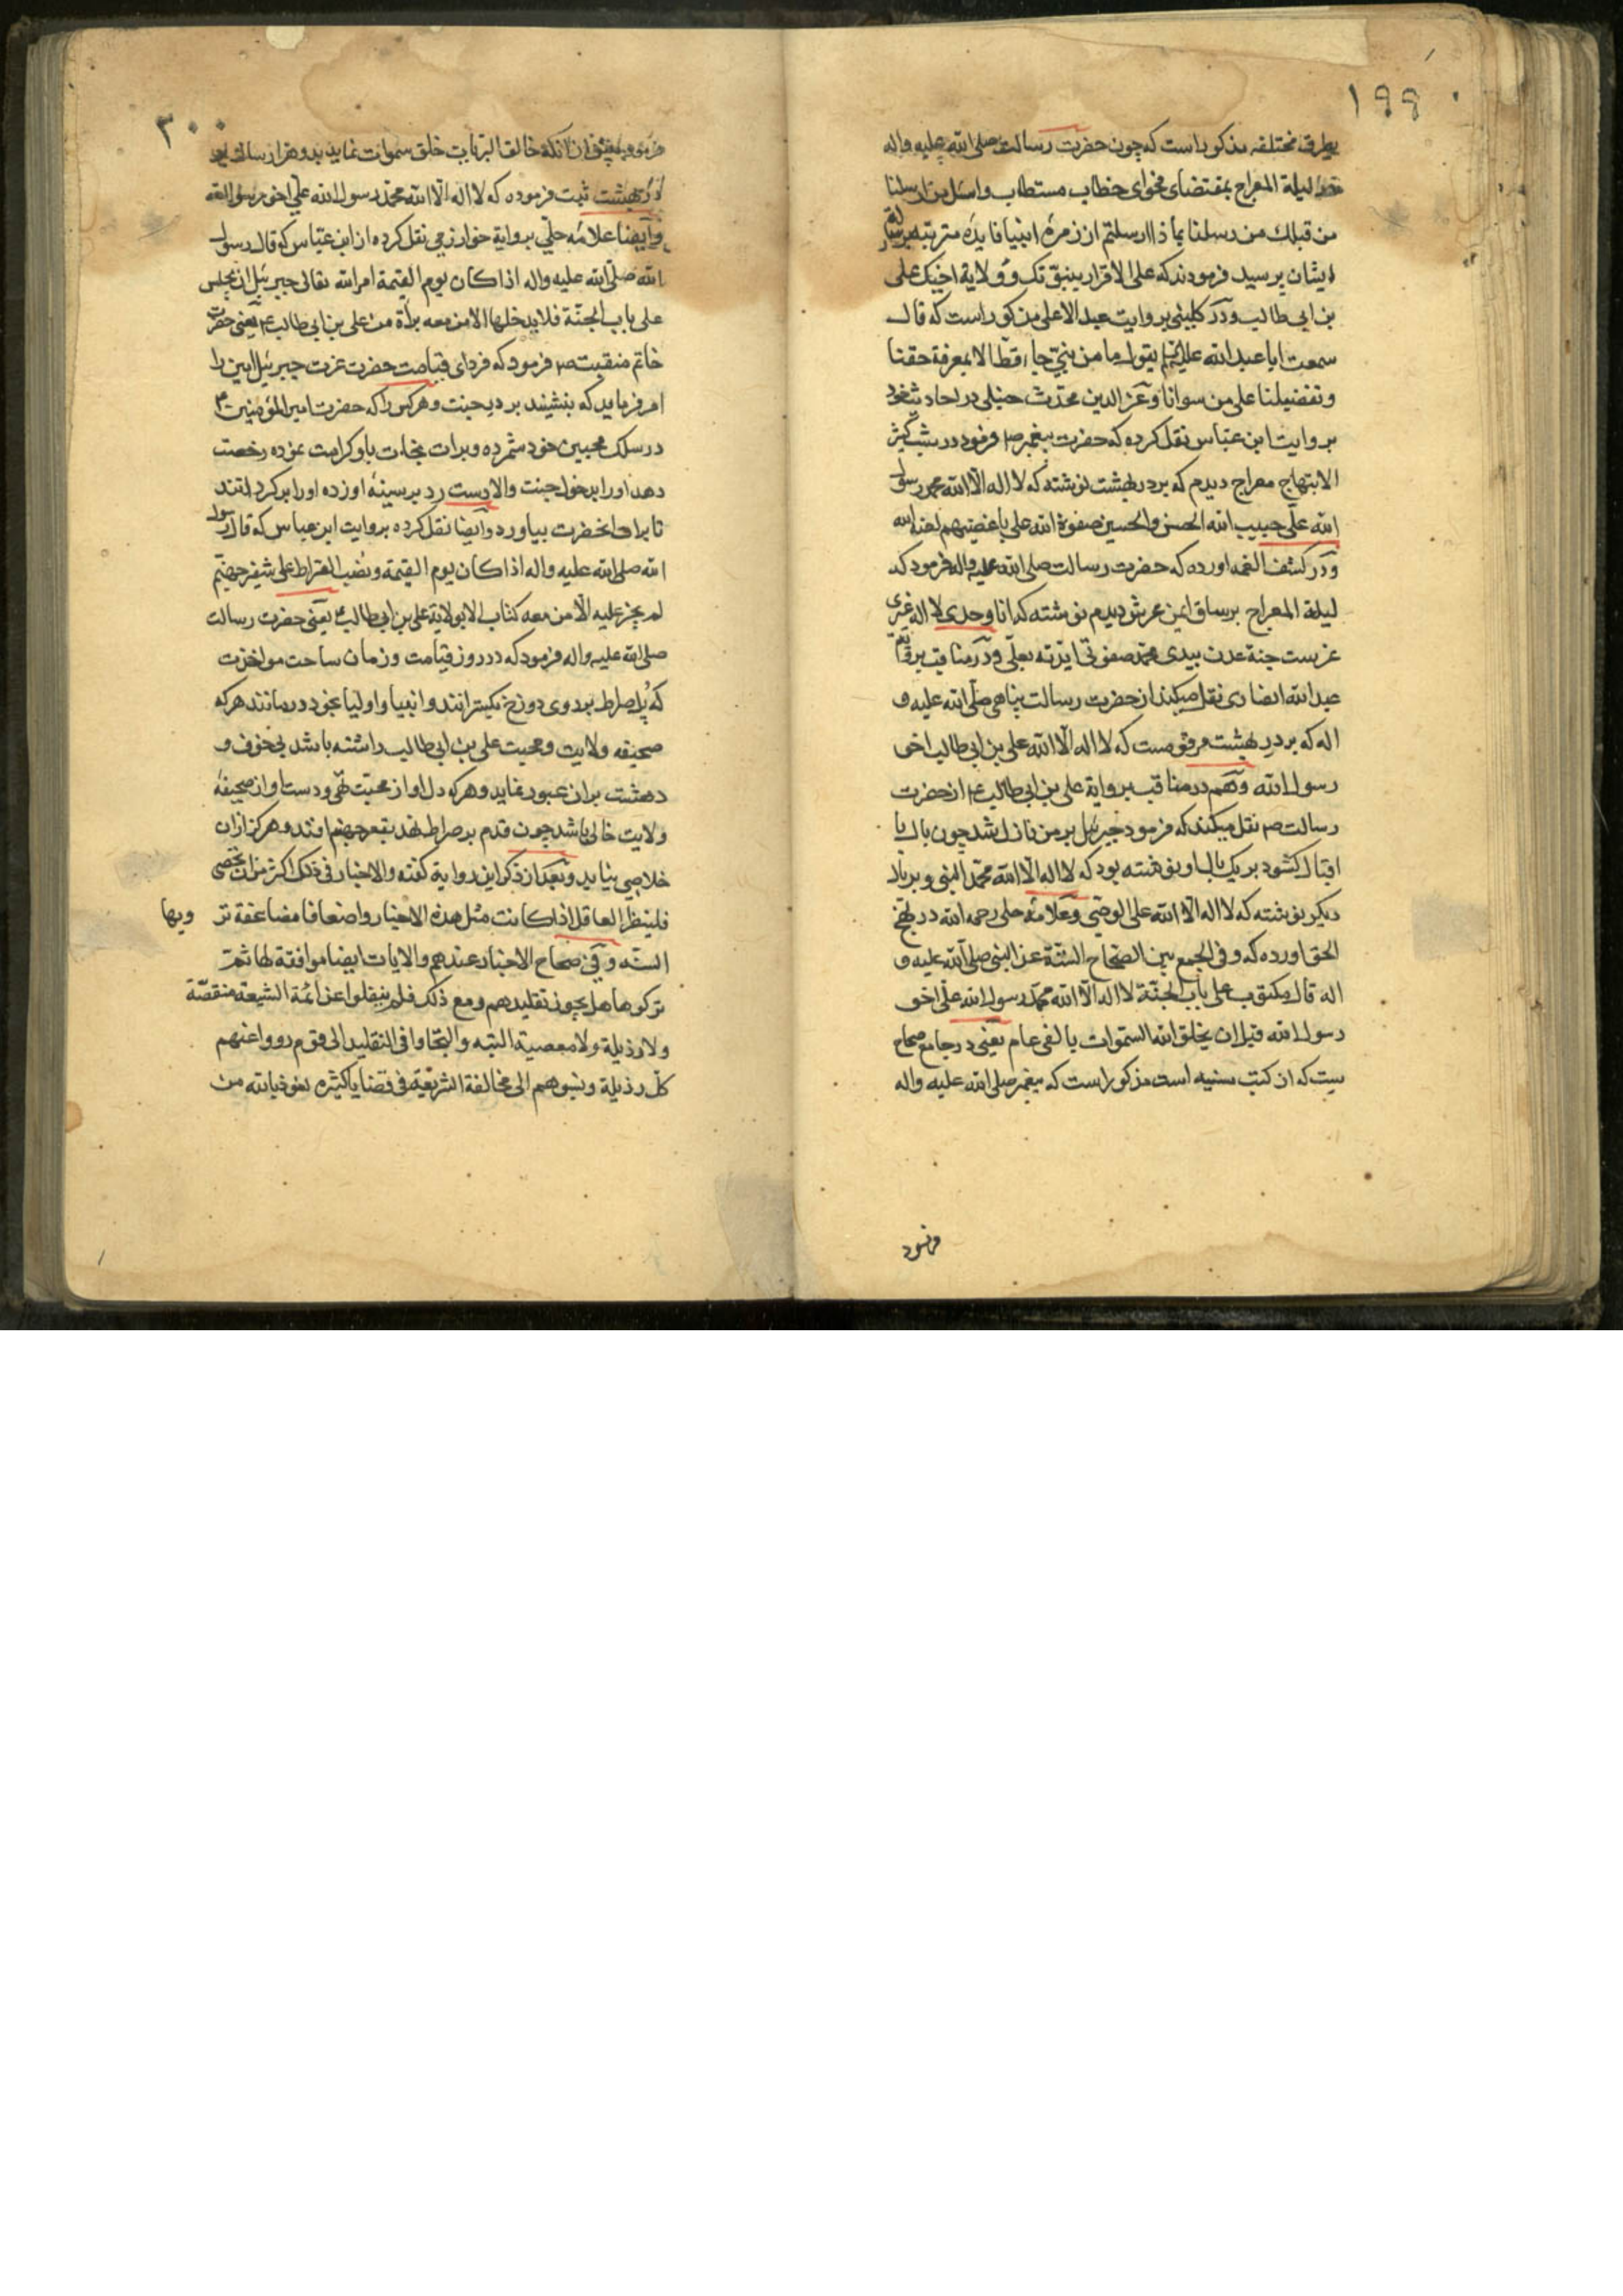 ۱۹۹
بطرق مختلفه مذکور است که چون حضرت رسالت صلی الله علیه واله
لیلة المعراج بمقتضای فحوای خطاب مستطاب واسئل من ارسلنا
من قبلك من رسلنا بماذا ارسلتم از زمرهٔ انبیا فایدهٔ مترتبه بر رسالت
ایشان پرسید فرمودند که علی الاقرار بنبوّتک و ولایة اخیک علی
بن ابی طالب ودر کلینی بروایت عبد الاعلی مذکور است که قال
سمعت ابا عبد الله علیه السلام یقول ما من نبیّ جاء قطّ الا بمعرفة حقنا
وتفضیلنا علی من سوانا وعز الدین محدّث حنبلی در احادیث خود
بروایت ابن عبّاس نقل کرده که حضرت پیغمبر ص فرمود در شب کثیر
الابتهاج معراج دیدم که بر در بهشت نوشته که لا اله الّا الله محمد رسول
الله علّی حبیب الله الحسن والحسین صفوة الله علی باغضیهم لعنة الله
ودر کشف الغمه اورده که حضرت رسالت صلی الله علیه واله فرمود که
لیلة المعراج بر ساق ایمن عرش دیدم نوشته که انا وحدی لا اله غیری
غرست جنة عدن بیدی محمد صفوتی ایّدته بعلّی ودر مناقب بروایت
عبد الله انصاری نقل میکند از حضرت رسالت پناهی صلّی الله علیه و
اله که بر در بهشت مرقومست که لا اله الّا الله علی بن ابی طالب اخی
رسول الله وهم در مناقب بروایة علی بن ابی طالب ع از حضرت
رسالت ص نقل میکند که فرمود جبرئیل بر من نازل شد چون بال با
اقبال کشود بر یک بال او نوشته بود که لا اله الّا الله محمّد النبی وبر بال
دیکر نوشته که لا اله الّا الله علی الوصّی وعلامهٔ حلی رحمه الله در نهج
الحق اورده که وفی الجمع بین الصّحاح السّتّة عن النبی صلی الله علیه و
اله قال مکتوب علی باب الجنّة لا اله الّا الله محمّد رسول الله علّی اخو
رسول الله قبل ان یخلق الله السّموات بالفی عام یعنی در جامع صحاح
ستّ که از کتب سنیه است مذکور است که پیغمبر صلی الله علیه واله
فرمود
۳۰۰
پیش از انکه خالق البریات خلق سموات نماید بدو هزار سال بر
در بهشت ثبت فرموده که لا اله الّا الله محمّد رسول الله علّی اخو رسول الله
وایضا علامه حلّی بروایة خوارزمی نقل کرده از ابن عبّاس که قال رسول
الله صلّی الله علیه واله اذا کان یوم القیمة امر الله تعالی جبرئیل ان یجلس
علی باب الجنّة فلا یدخلها الا من معه براة من علی بن ابی طالب ع یعنی حضرت
خاتم منقبت ص فرمود که فردای قیامت حضرت عزت جبرئیل امین را
امر فرماید که بنشیند بر در جنت وهر کس را که حضرت امیر المؤمنین ع
در سلک محبین خود شمرده وبرات نجات باو کرامت نموده رخصت
دهد او را بدخول جنت والا دست رد بر سینهٔ او زده او را بر کرداند
تا برات انحضرت بیاورد وایضا نقل کرده بروایت ابن عباس که قال رسول
الله صلی الله علیه واله اذا کان یوم القیمة ونصب الصراط علی شفیر جهنّم
لم یجز علیه الّا من معه کتاب الا بولایة علی بن ابی طالب ع یعنی حضرت رسالت
صلی الله علیه واله فرمود که در روز قیامت وزمان ساحت مواخذت
که پل صراط بر روی دوزخ بکسترانند وانبیا واولیا بخود درمانند هر که
صحیفه ولایت ومحبت علی بن ابی طالب داشته باشد بی خوف و
دهشت بران عبور نماید وهر که دل او از محبت تهّی ودست او از صحیفهٔ
ولایت خالی باشد چون قدم بر صراط نهد بقعر جهنم افتد وهرکز ازان
خلاصی نیابد وبعد از ذکر این روایة کفته والاخبار فی ذلک اکثر من ان تحصی
فلینظر العاقل اذا کانت مثل هذه الاخبار واضعافا مضاعفة تر
ویها
السّنّه وفی صحاح الاخبار عندهم والایات ایضا موافقة لها ثمّ
ترکوها هل یجوز تقلیدهم ومع ذلک فلم ینقلوا عن ائمّة الشیعة منقصّة
ولا رذیلة ولا معصیة البته والتجاوا فی التقلید الی قوم رووا عنهم
کلّ رذیلة ونسبوهم الی مخالفة الشریعة فی قضایا کثیره نعوذ بالله من